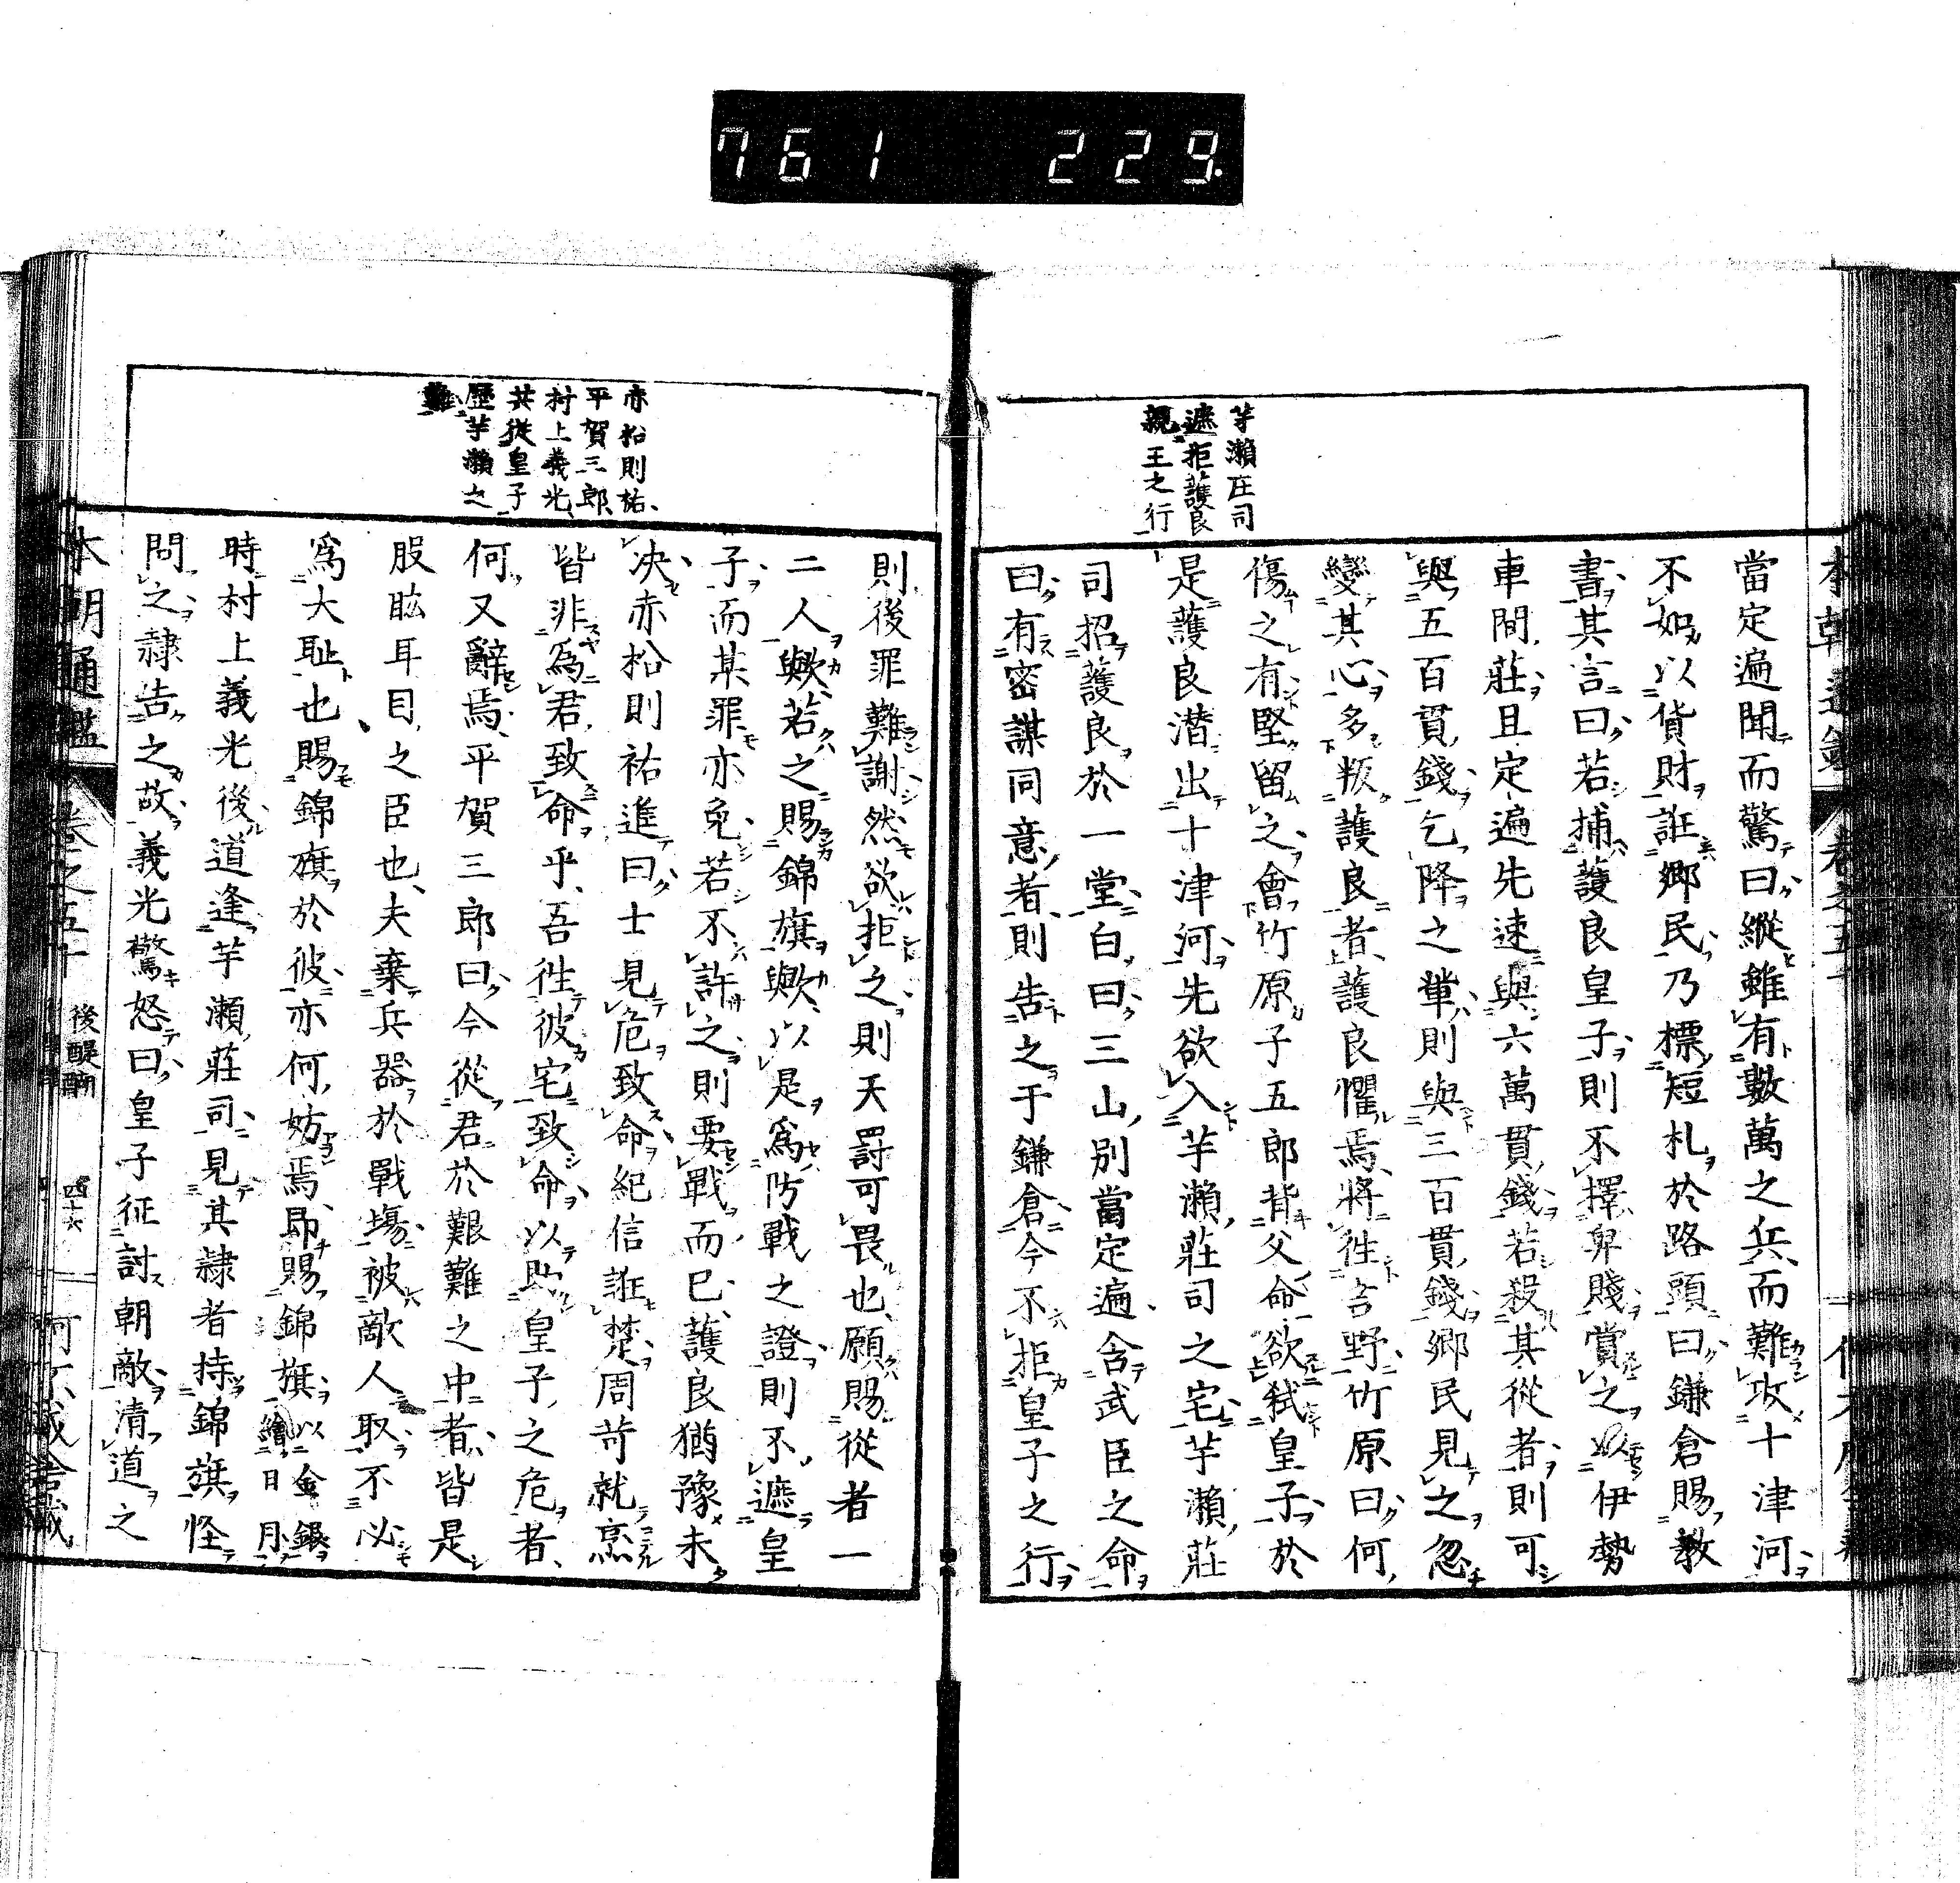 761 229.
芋瀬庄司
遮拒護良
親王之行
當定遍聞而驚曰縱雖有數萬之兵而難攻十津河
不如以貨財誑郷民乃標短札於路頭曰鎌倉賜教
書其言曰若捕護良皇子則不擇卑賤賞之以伊勢
車間莊且定遍先速與六萬貫錢若殺其從者則可
與五百貫錢乞降之輩則與三百貫錢郷民見之忽
變其心多叛護良者護良懼焉將徃吉野竹原曰何
傷之有堅留之會竹原子五郎背父命欲弑皇子於
是護良潜出十津河先欲入芋瀬莊司之宅芋瀬莊
司招護良於一堂白曰三山別當定遍含武臣之命
曰有密謀同意者則告之于鎌倉今不拒皇子之行
赤松則祐
平賀三郎
村上義光
共從皇子
歴芋瀬之
難
則後罪難謝然欲拒之則天罸可畏也願賜從者一
二人歟若之賜錦旗歟以是爲防戰之證則不遮皇
子而某罪亦免若不許之則要戰而已護良猶豫未
决赤松則祐進曰士見危致命紀信誑楚周苛就烹
皆非爲君致命乎吾徃彼宅致命以助皇子之危者
何又辭焉平賀三郎曰今從君於艱難之中者皆是
股肱耳目之臣也夫棄兵器於戰塲被敵人取不必
爲大耻也賜錦旗於彼亦何妨焉即賜錦旗以金銀繪日月
時村上義光後道逢芋瀬莊司見其隷者持錦旗怪
問之隷告之故義光驚怒曰皇子征討朝敵清道之
本朝通鑑 卷之五十 後醍醐 四十六